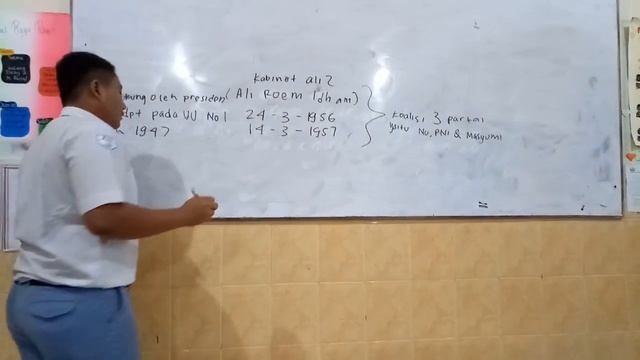 Kabinet ali 2
oleh presiden (Ali Roem Idham)
pada UU No 1 24-3-1956
1947 14-3-1957
Koalisi 3 partai
yaitu Nu, PNI & Masyumi
=